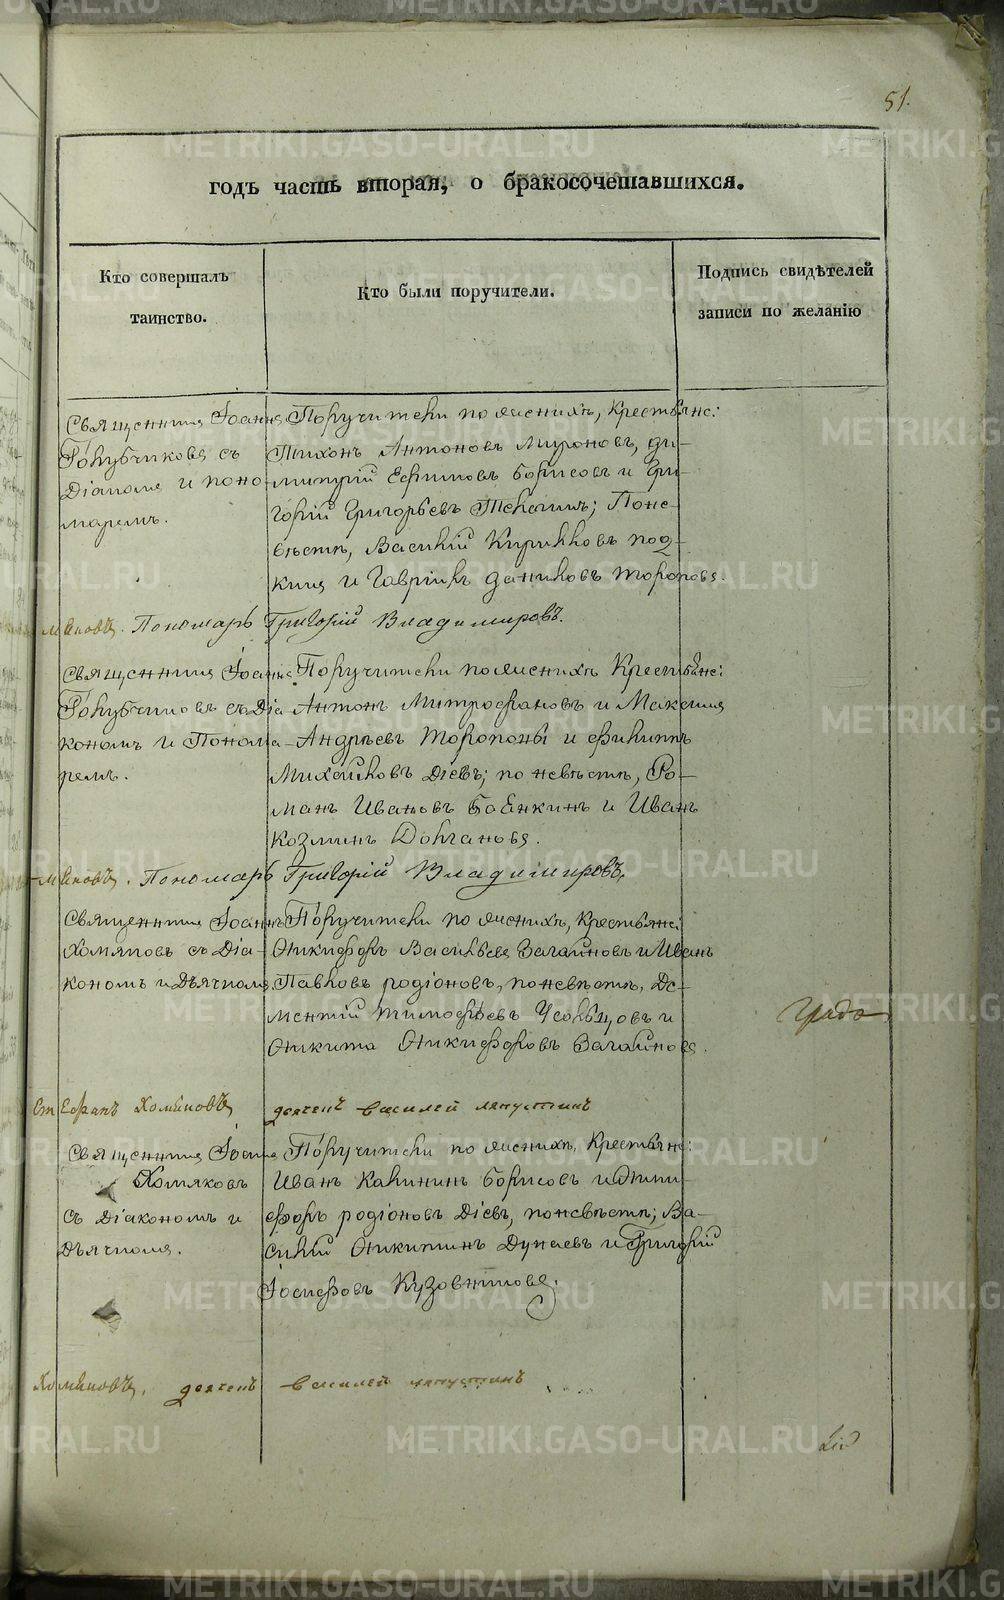 51.
годъ часть вторая, о бракосочетавшихся.
Кто совершалъ
таинство.
Кто были поручители.
Подпись свидѣтелей
записи по желанію
Священникъ Іоаннъ
Голубчиковъ съ
Діакономъ и поно-
маремъ.
Поручители по женихѣ, крестьяне:
Тихонъ Антоновъ Мироновъ, Ди-
митрій Ефимовъ Борисовъ и Гри-
горій Григорьевъ; Поне-
вѣстѣ, Василій Кириловъ
и Гавріилъ Даниловъ Тороповъ.
Пономарь Григорій Владимировъ.
Священникъ Іоаннъ
Голубчиковъ съ Діа-
кономъ и Понома-
ремъ.
Поручители по женихѣ Крестьяне:
Антонъ Митрофановъ и Максимъ
Андрѣевъ Тороповы и Филипъ
Михайловъ Діевъ; по невѣстѣ, Ро-
манъ Ивановъ Бабкинъ и Иванъ
Козминъ Долгановъ.
Пономарь Григорій Владимировъ.
Священникъ Іоаннъ
Хомяковъ съ Діа-
кономъ и Дьячкомъ.
Поручители по женихѣ, крестьяне:
Никифоръ Васильевъ Загайновъ и Иванъ
Павловъ Родіоновъ, по невѣстѣ, Де-
ментій Тимофѣевъ Усольцовъ и
Никита Никифоровъ Загайновъ.
Стефанъ Хомяковъ дьячекъ Василей Ляпустинъ
Священникъ Іоаннъ
Хомяковъ
съ Діакономъ и
Дьячкомъ.
Поручители по женихѣ, Крестьяне:
Иванъ Калининъ Борисовъ и Ники-
форъ Родіоновъ Діевъ, по невѣстѣ; Ва-
силій Никитинъ Дунаевъ и Григорій
Іосифовъ Кузовниковъ.
Хомяковъ, дьячекъ Василей Ляпустинъ
METRIKI.GASO-URAL.RU